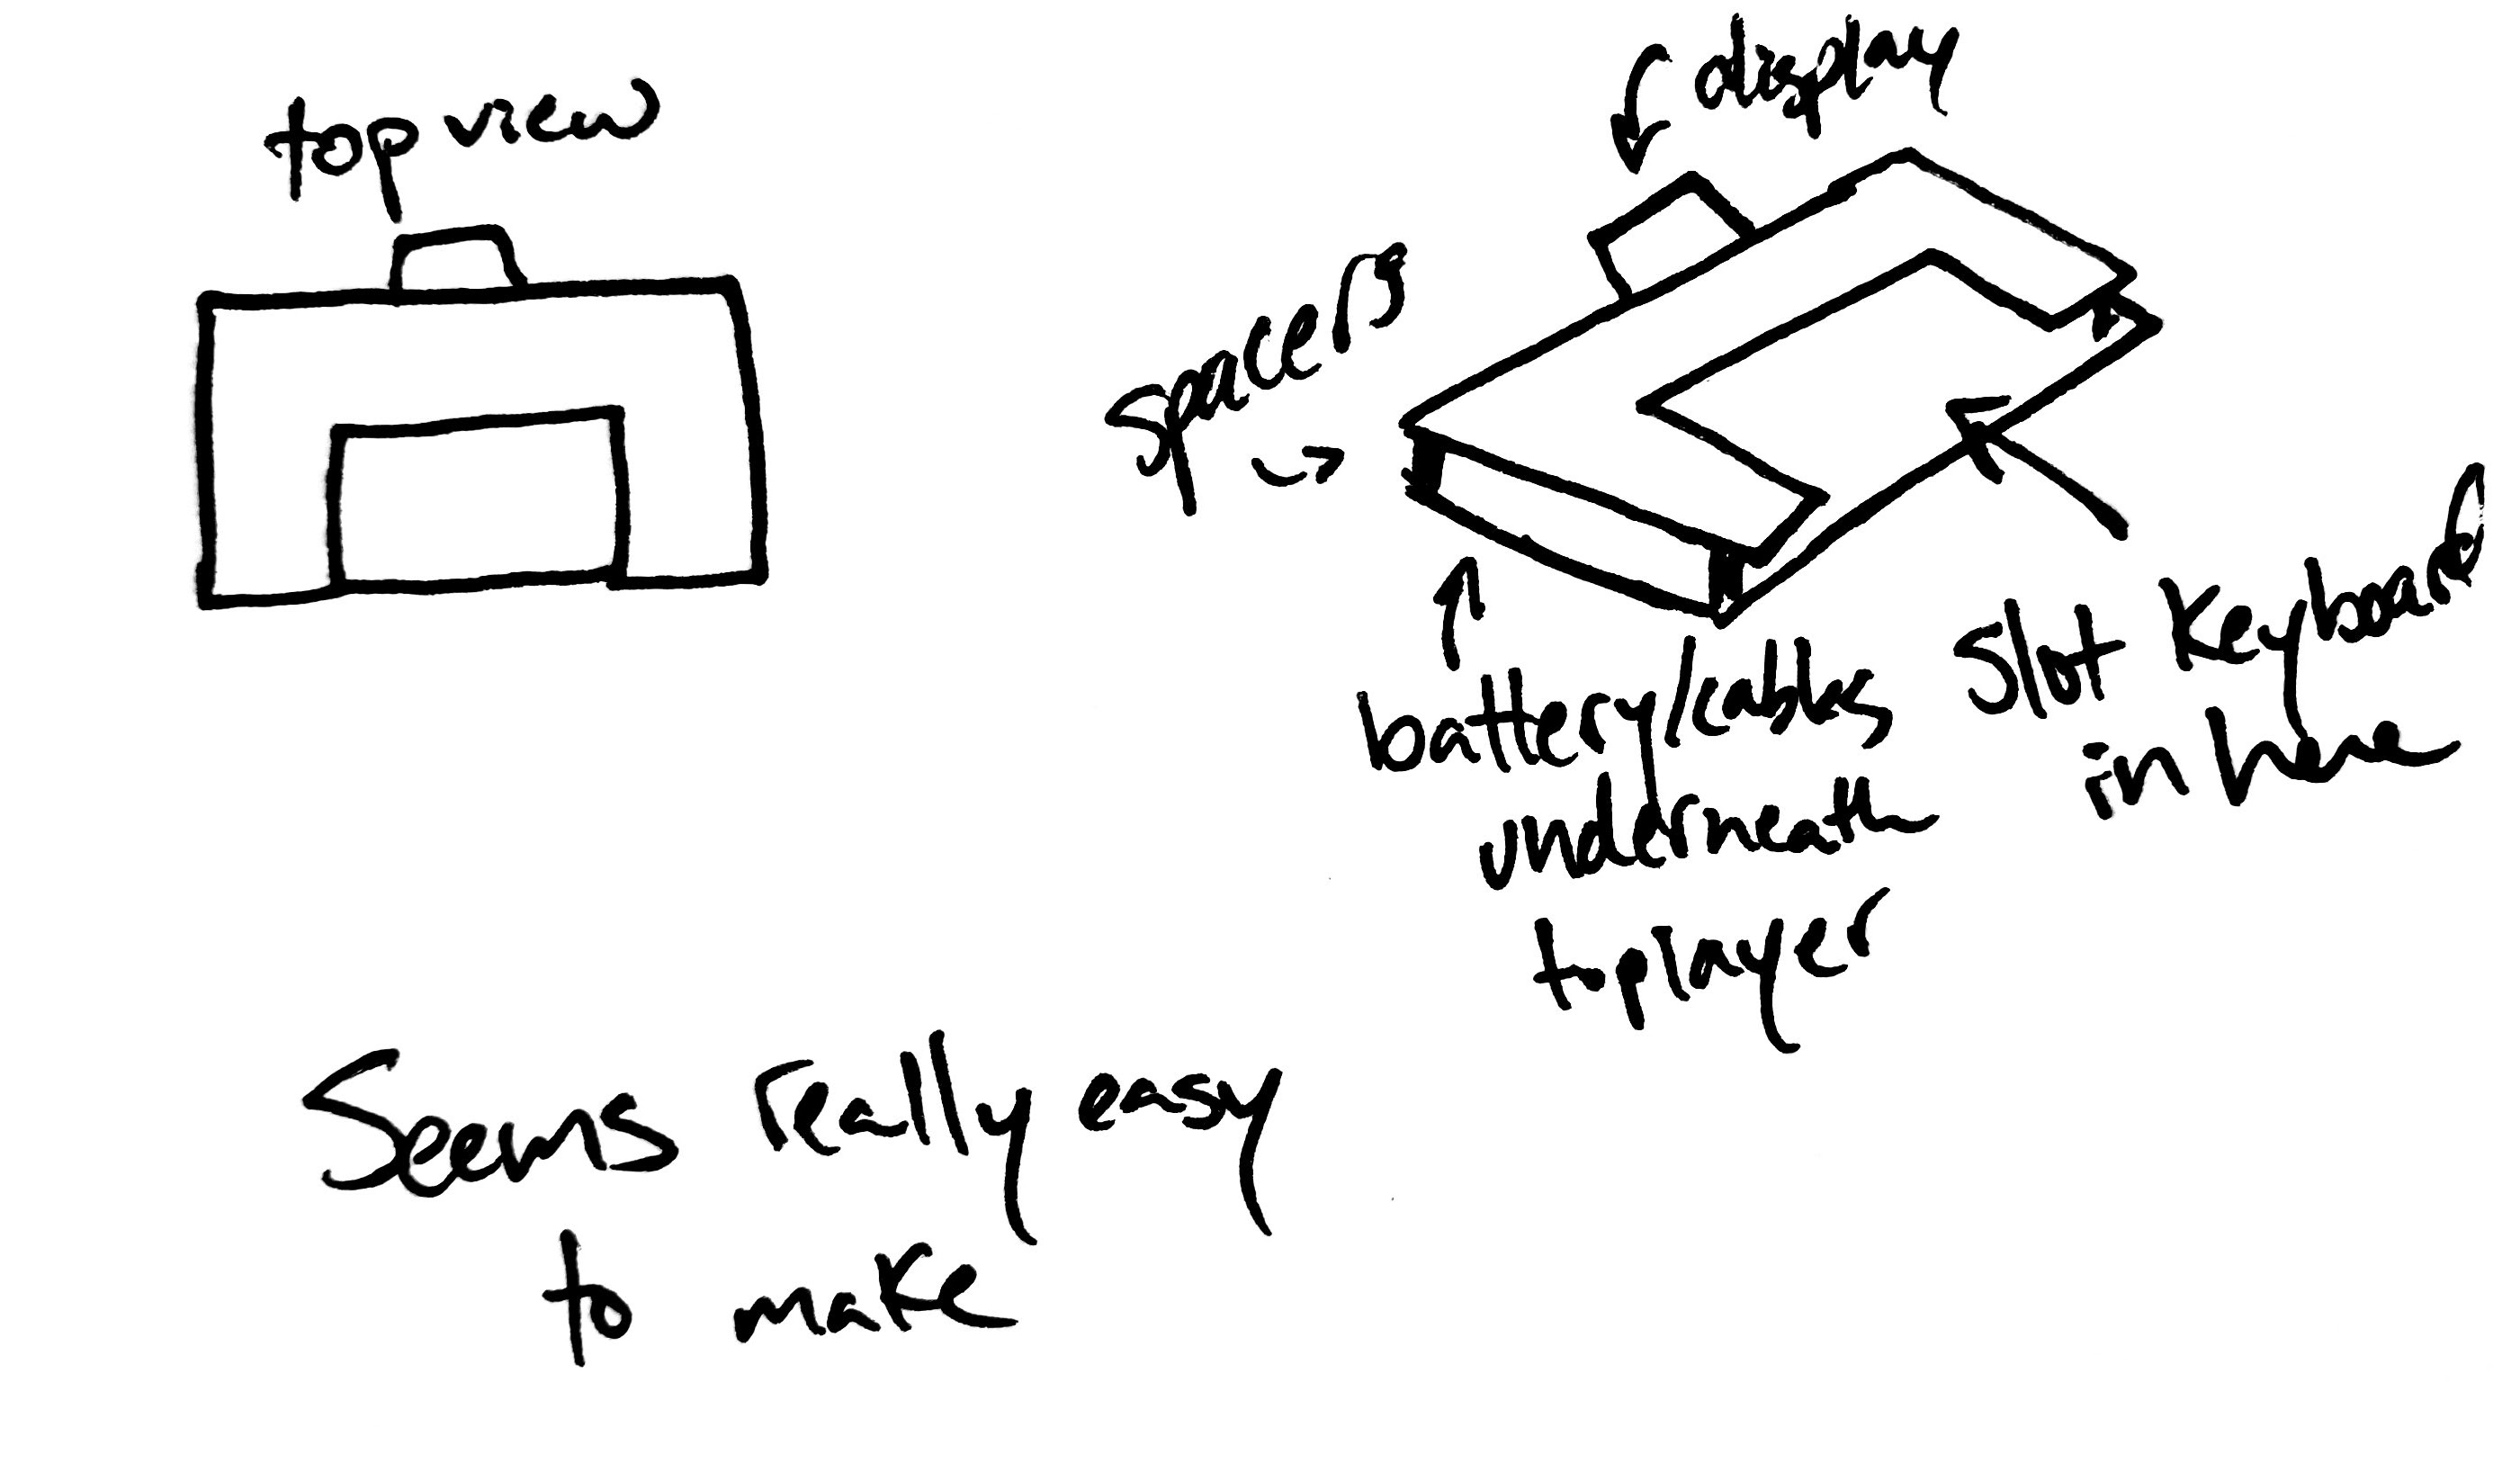 top view
display
spacers
battery/cables
underneath
top layer
Slot Keyboard
in here
Seems really easy
to make